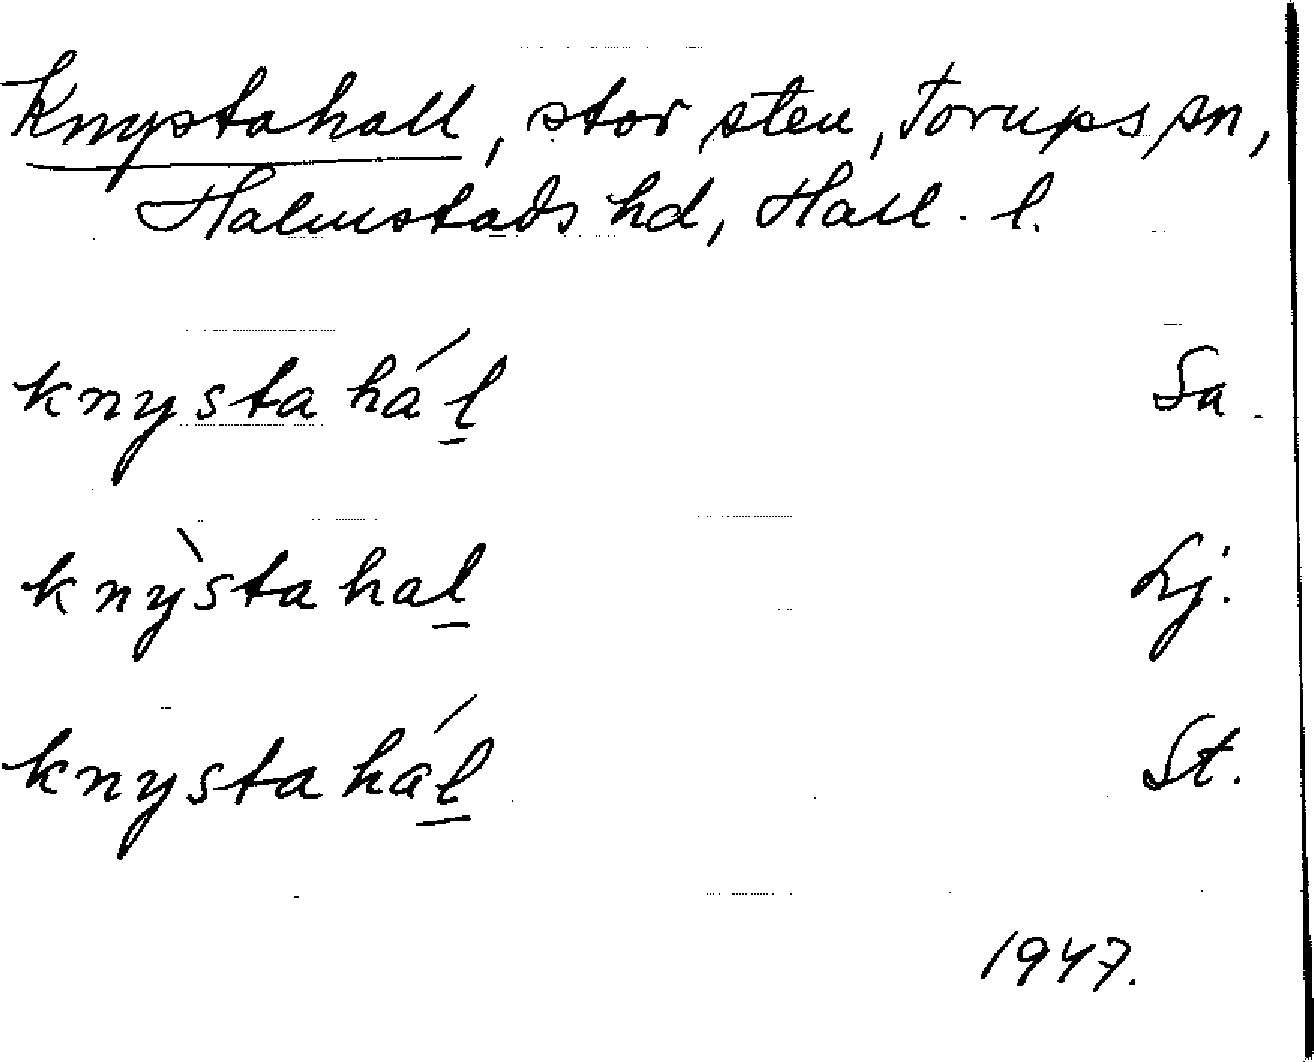 Knystahall, stor sten, Torups sn,
Halmstads hd, Hall. l.
knystahál̲ Sa.
knỳstahal̲ Lj.
knystahál̲ St.
1947.